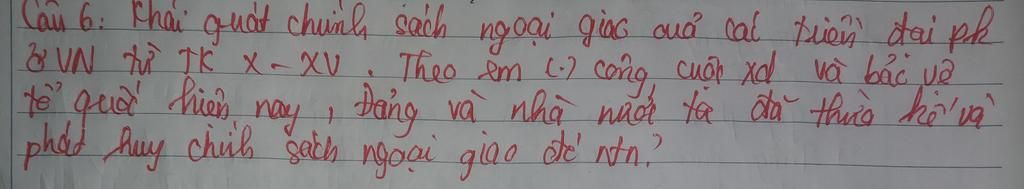 Câu 6: Khái quát chính sách ngoại giao của các triều đại pk
ở VN từ TK X - XV. Theo em (.) công cuộc xd và bảo vệ
tổ quốc hiện nay, Đảng và nhà nước ta đã thừa kế và
phát huy chính sách ngoại giao đó ntn?